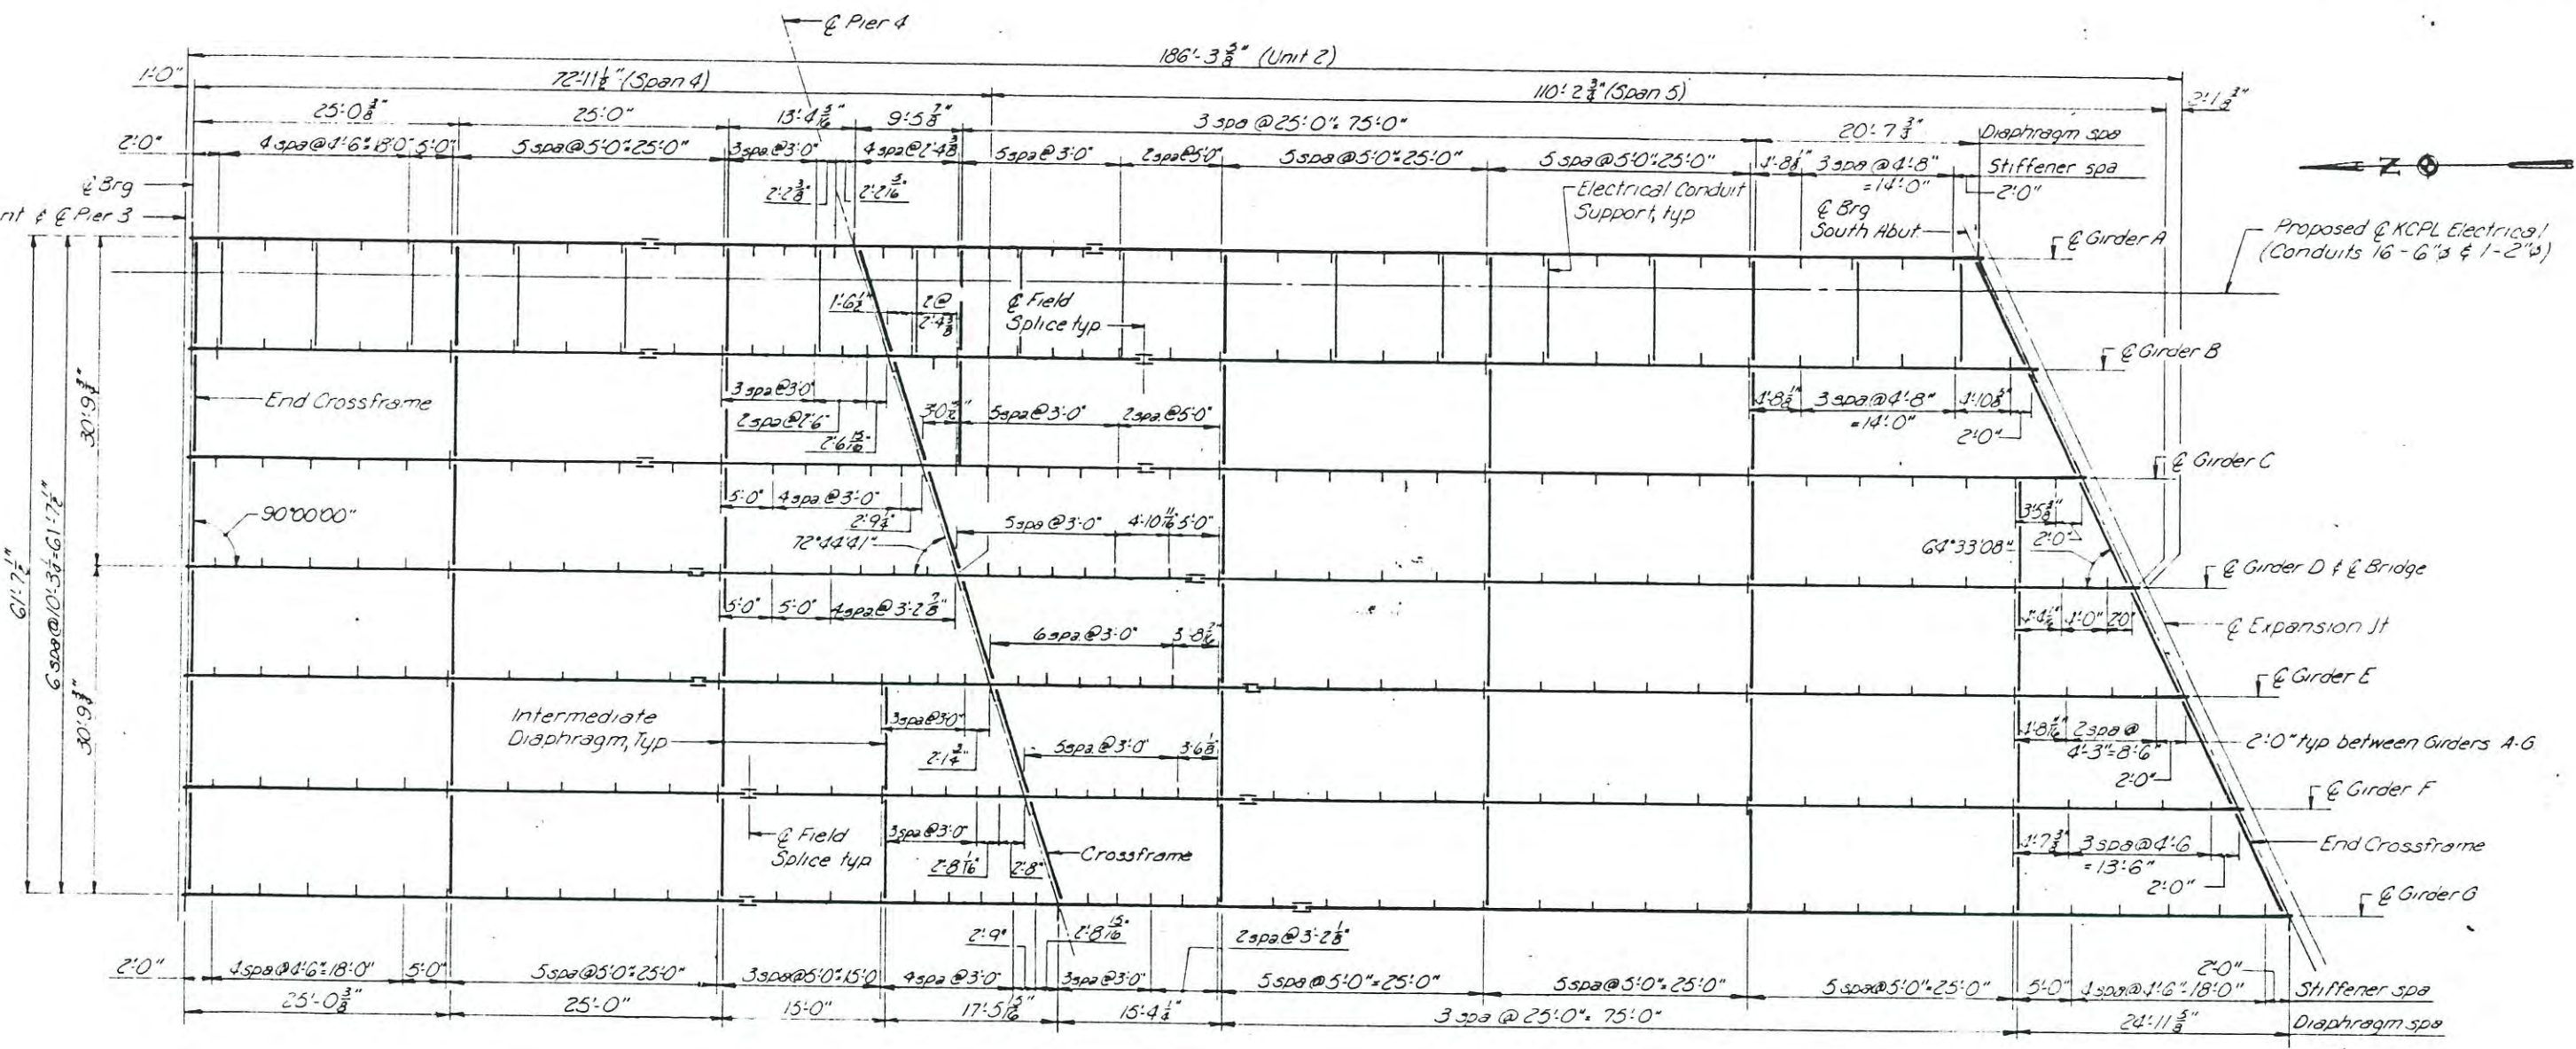 ℄ Pier 4
186'-3 5/8" (Unit 2)
1'-0"
72'-11 1/2" (Span 4)
110'-2 3/4" (Span 5)
2'-1 3/8"
25'-0 3/8"
25'-0"
13'-4 5/16"
9'-5 7/8"
3 spa @ 25'-0" = 75'-0"
20'-7 3/8"
Diaphragm spa
2'-0"
4 spa @ 4'-6" = 18'-0"
5'-0"
5 spa @ 5'-0" = 25'-0"
3 spa. @ 3'-0"
4 spa @ 2'-4 3/8"
5 spa @ 3'-0"
2 spa @ 5'-0"
5 spa @ 5'-0" = 25'-0"
5 spa @ 5'-0" = 25'-0"
4'-8 1/8"
3 spa @ 4'-8"
= 14'-0"
Stiffener spa
2'-0"
2'-2 3/8"
2'-2 5/16"
℄ Brg
nt & ℄ Pier 3
Electrical Conduit
Support, typ
℄ Brg
South Abut.
N
Proposed ℄ KCPL Electrical
(Conduits 16 - 6"ø & 1 - 2"ø)
℄ Girder A
1'-6 1/2"
2 @
2'-4 3/8"
℄ Field
Splice typ.
℄ Girder B
End Crossframe
3 spa @ 3'-0"
2 spa @ 2'-6"
2'-6 15/16"
5 spa @ 3'-0"
2 spa. @ 5'-0"
4'-8 1/8"
3 spa @ 4'-8"
= 14'-0"
4'-10 5/8"
2'-0"
℄ Girder C
90°00'00"
5'-0"
4 spa @ 3'-0"
2'-9 1/4"
72°44'41"
5 spa @ 3'-0"
4'-10 11/16"
5'-0"
3'-5 3/8"
2'-0"
64°33'08"
℄ Girder D & ℄ Bridge
61'-7 1/2"
6 spa @ 10'-3 1/4" = 61'-7 1/2"
30'-9 3/4"
30'-9 3/4"
5'-0"
5'-0"
4 spa @ 3'-2 7/8"
4'-0"
2'-0"
6 spa. @ 3'-0"
3'-8 7/16"
℄ Expansion Jt
℄ Girder E
Intermediate
Diaphragm, Typ
3 spa @ 3'-0"
2'-1 3/4"
5 spa. @ 3'-0"
3'-6 1/8"
2 spa @
4'-3" = 8'-6"
2'-0"
2'-0" typ between Girders A-G
℄ Girder F
℄ Field
Splice typ
3 spa @ 3'-0"
2'-8 1/16"
2'-8"
Crossframe
4'-7 3/8"
3 spa @ 4'-6
= 13'-6"
2'-0"
End Crossframe
℄ Girder G
2'-9"
2'-8 15/16"
2 spa @ 3'-2 1/8"
2'-0"
2'-0"
4 spa @ 4'-6" = 18'-0"
5'-0"
5 spa @ 5'-0" = 25'-0"
3 spa @ 5'-0" = 15'-0
4 spa @ 3'-0"
3 spa @ 3'-0"
5 spa @ 5'-0" = 25'-0"
5 spa @ 5'-0" = 25'-0"
5 spa @ 5'-0" = 25'-0"
5'-0"
4 spa @ 4'-6" = 18'-0"
Stiffener spa
25'-0 3/8"
25'-0"
15'-0"
17'-5 15/16"
15'-4 1/4"
3 spa @ 25'-0" = 75'-0"
24'-11 5/8"
Diaphragm spa